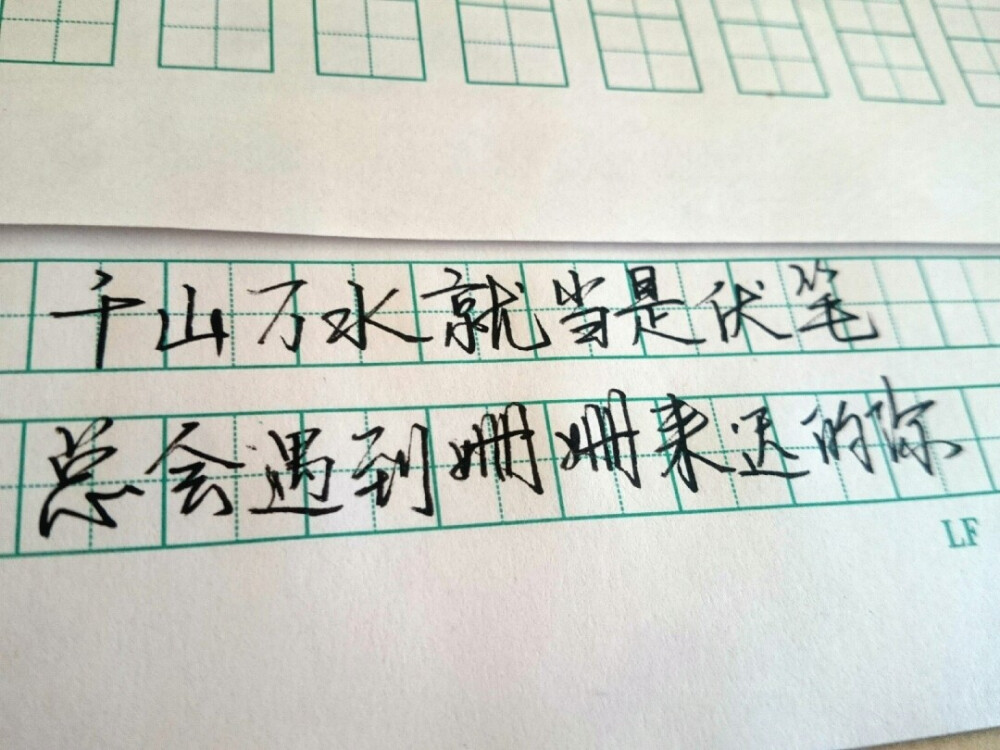 千山万水就当是伏笔
总会遇到姗姗来迟的你
LF